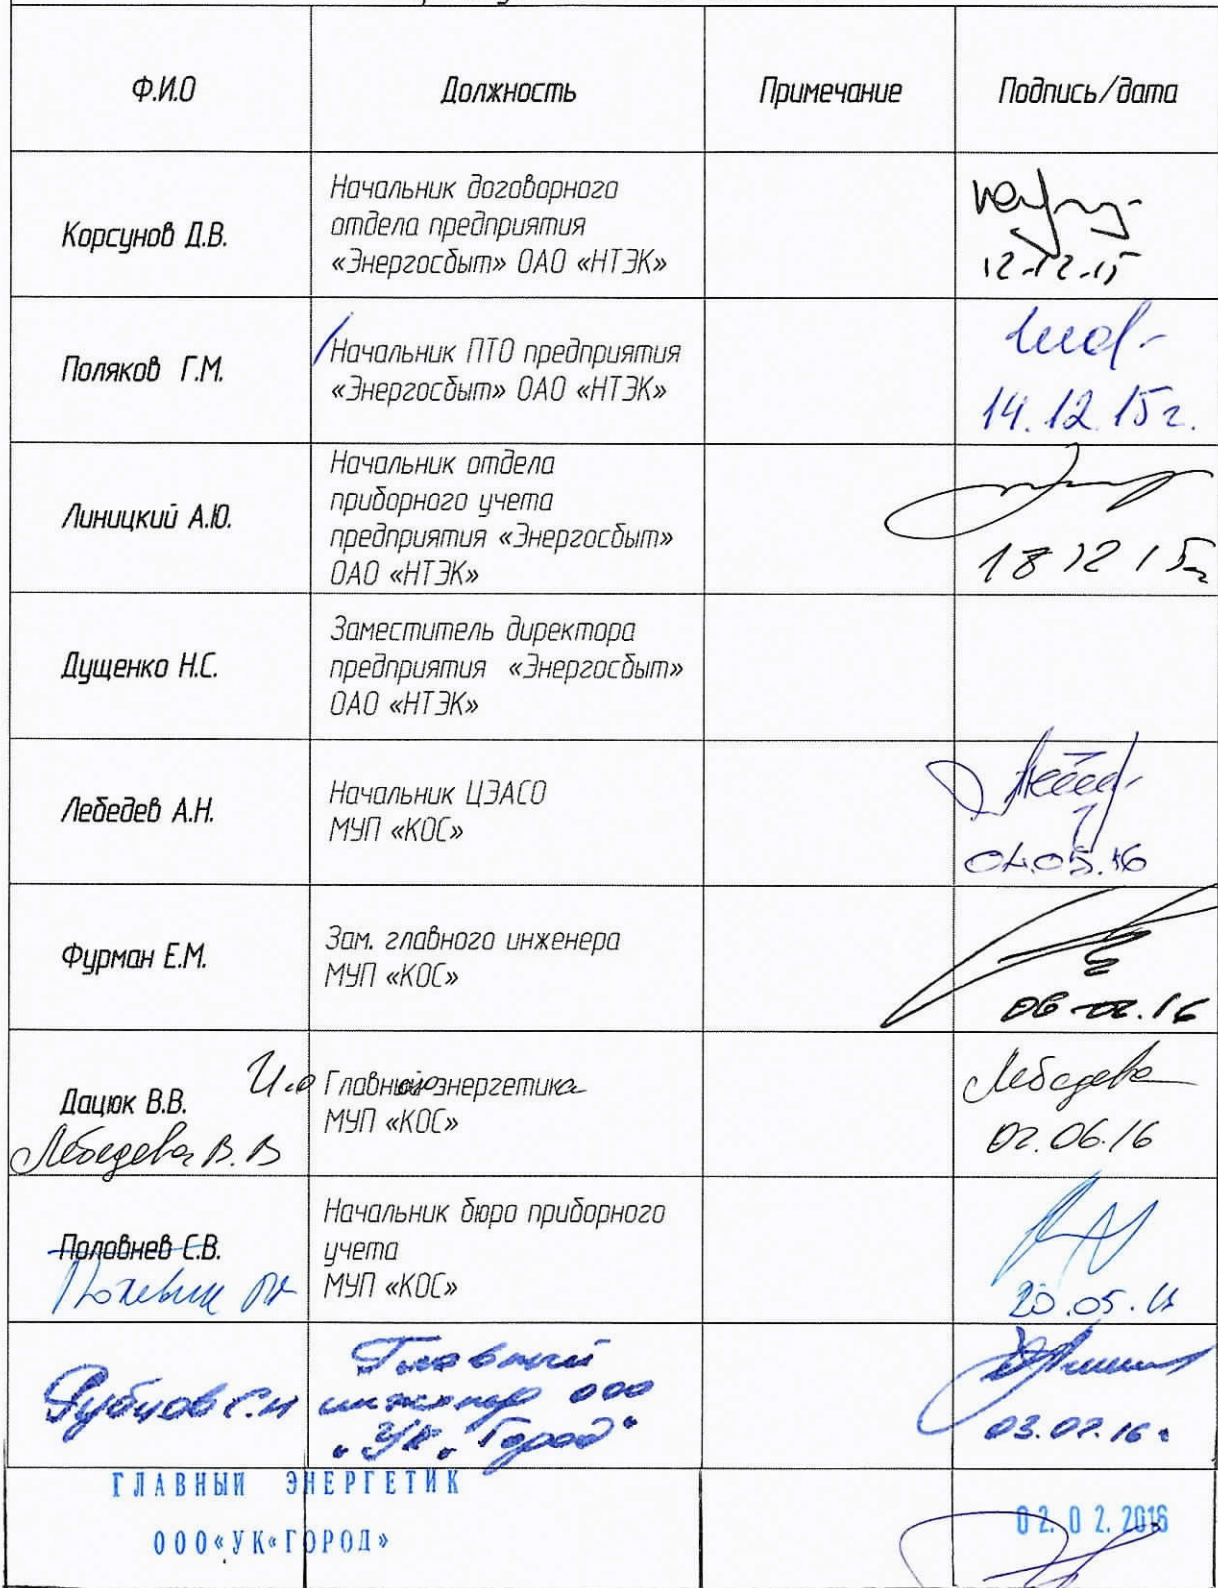 Ф.И.О Должность Примечание Подпись/дата
Начальник договорного
отдела предприятия
«Энергосбыт» ОАО «НТЭК»
Корсунов Д.В.
12.12.15
Поляков Г.М.
Начальник ПТО предприятия
«Энергосбыт» ОАО «НТЭК»
14.12.15г.
Линицкий А.Ю.
Начальник отдела
приборного учета
предприятия «Энергосбыт»
ОАО «НТЭК»
18 12 15г
Дущенко Н.С.
Заместитель директора
предприятия «Энергосбыт»
ОАО «НТЭК»
Лебедев А.Н.
Начальник ЦЭАСО
МУП «КОС»
04.05.16
Фурман Е.М.
Зам. главного инженера
МУП «КОС»
06.02.16
Дацюк В.В.
Лебедева В.В
И.о Главного энергетика
МУП «КОС»
Лебедева
02.06.16
Половнев С.В.
Начальник бюро приборного
учета
МУП «КОС»
20.05.16
Рубцов С.Н
Главный
инженер ООО
"УК "Город"
03.02.16г
ГЛАВНЫЙ ЭНЕРГЕТИК
ООО«УК«ГОРОД»
02.02.2016